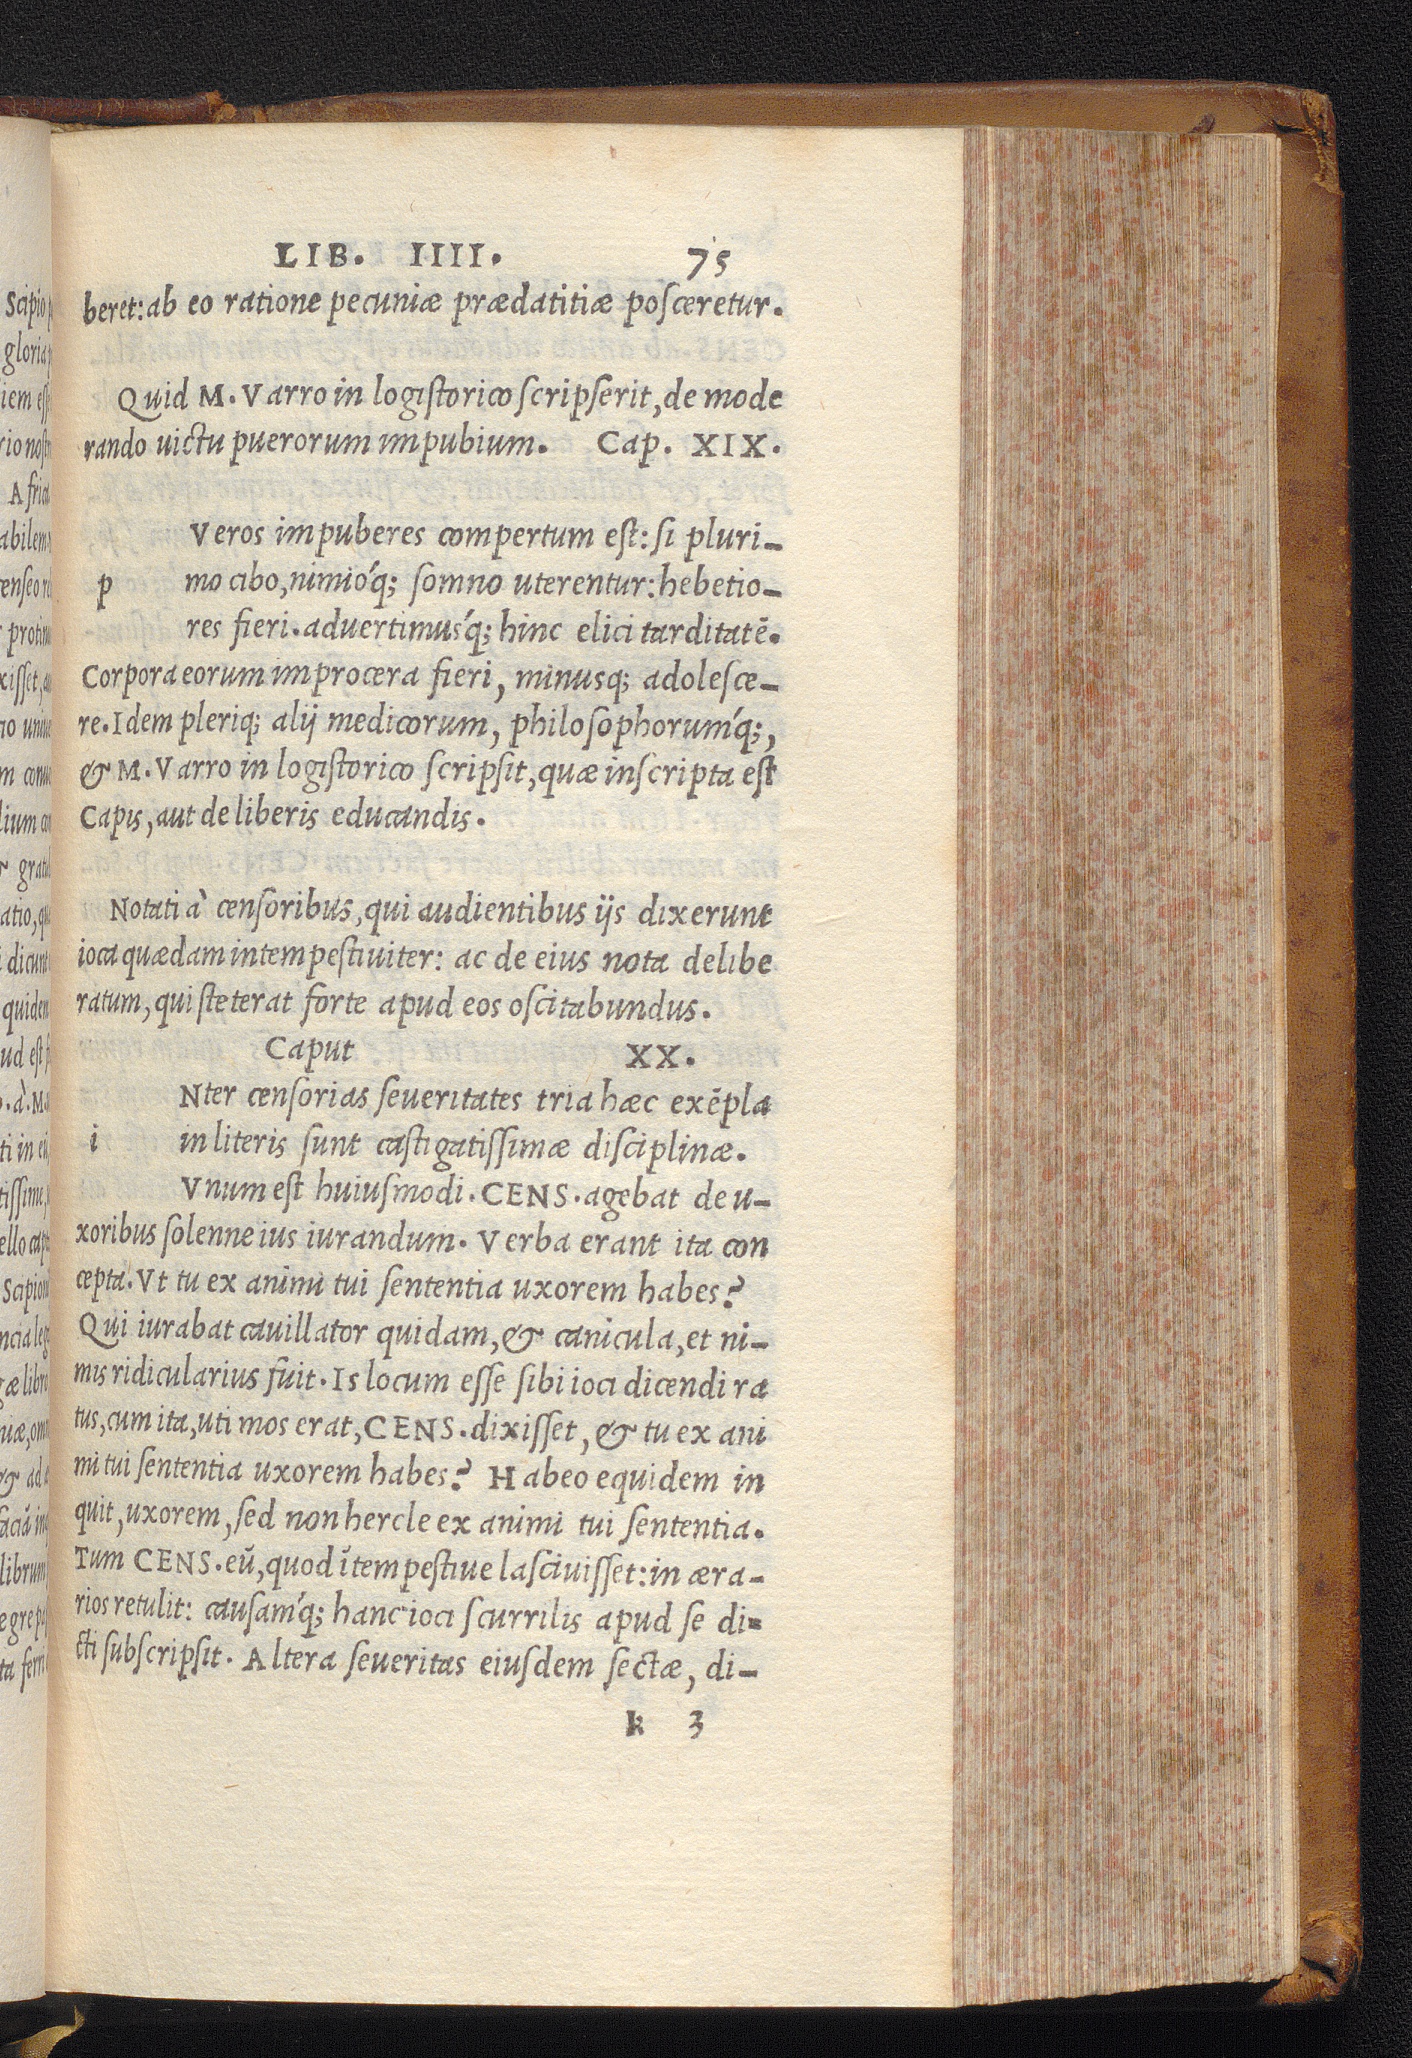 LIB. IIII. 75
beret: ab eo ratione pecuniæ prædatitiæ posceretur.
Quid M. Varro in logistorico scripserit, de mode
rando uictu puerorum impubium. Cap. XIX.
Veros impuberes compertum est: si pluri-
p mo cibo, nimióq; somno uterentur: hebetio-
res fieri. aduertimus'q; hinc elici tarditatē.
Corpora eorum improcera fieri, minusq; adolesce-
re. Idem pleriq; alij medicorum, philosophorum'q;,
& M. Varro in logistorico scripsit, quæ inscripta est
Capis, aut de liberis educandis.
Notati à censoribus, qui audientibus ijs dixerunt
ioca quædam intempestiuiter: ac de eius nota delibe
ratum, qui steterat forte apud eos oscitabundus.
Caput XX.
Nter censorias seueritates tria hæc exēpla
i in literis sunt castigatissimæ disciplinæ.
Vnum est huiusmodi. CENS. agebat de u-
xoribus solenne ius iurandum. Verba erant ita con
cepta. Vt tu ex animi tui sententia uxorem habes?
Qui iurabat cauillator quidam, & canicula, et ni-
mis ridicularius fuit. Is locum esse sibi ioci dicendi ra
tus, cum ita, uti mos erat, CENS. dixisset, & tu ex ani
mi tui sententia uxorem habes? Habeo equidem in
quit, uxorem, sed non hercle ex animi tui sententia.
Tum CENS. eū, quod ītempestiue lasciuisset: in æra-
rios retulit: causam'q; hanc ioci scurrilis apud se di-
cti subscripsit. Altera seueritas eiusdem sectæ, di-
k 3